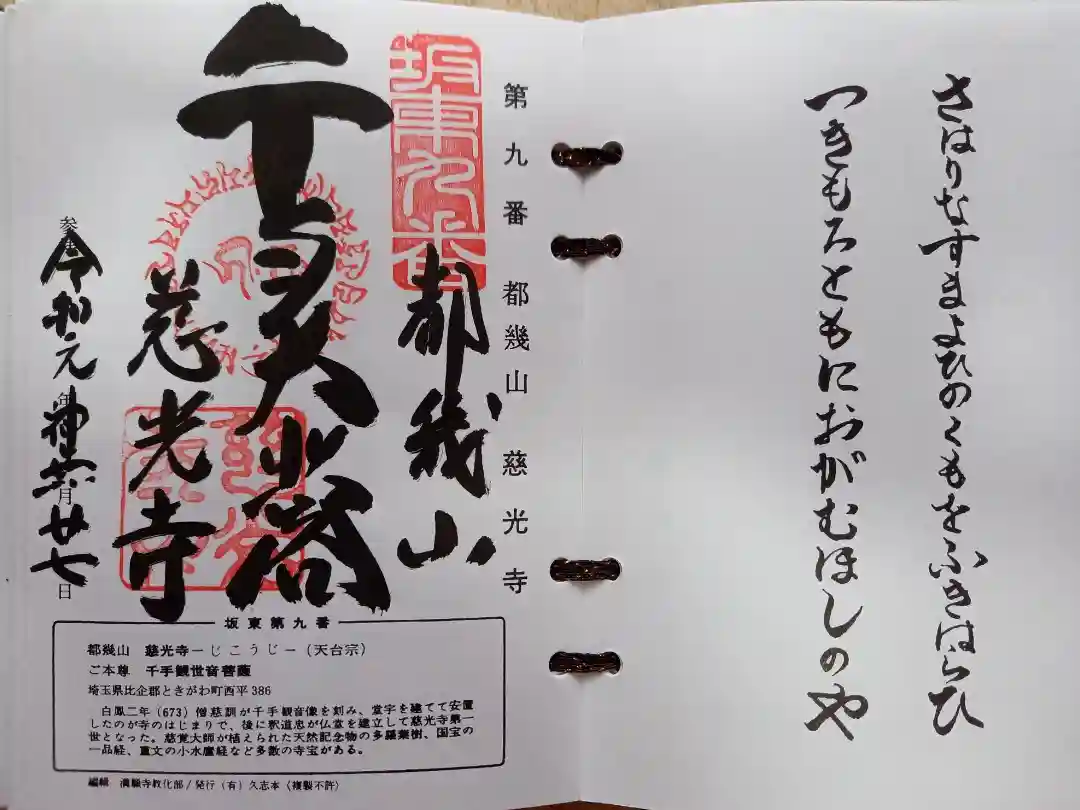 さはりなすまよひのくもをふきはらひ
つきもろともにおがむほしのや
第九番 都幾山 慈光寺
坂東九番
都幾山
慈光寺
令和元年神無月廿七日
坂東第九番
都幾山 慈光寺―じこうじ―(天台宗)
ご本尊 千手観世音菩薩
埼玉県比企郡ときがわ町西平386
白鳳二年(673)僧慈訓が千手観音像を刻み、堂宇を建てて安置
したのが寺のはじまりで、後に釈道忠が仏堂を建立して慈光寺第一
世となった。慈覚大師が植えられた天然記念物の多羅葉樹、国宝の
一品経、重文の小水麿経など多数の寺宝がある。
編輯 満願寺教化部/発行(有)久志本(複製不許)